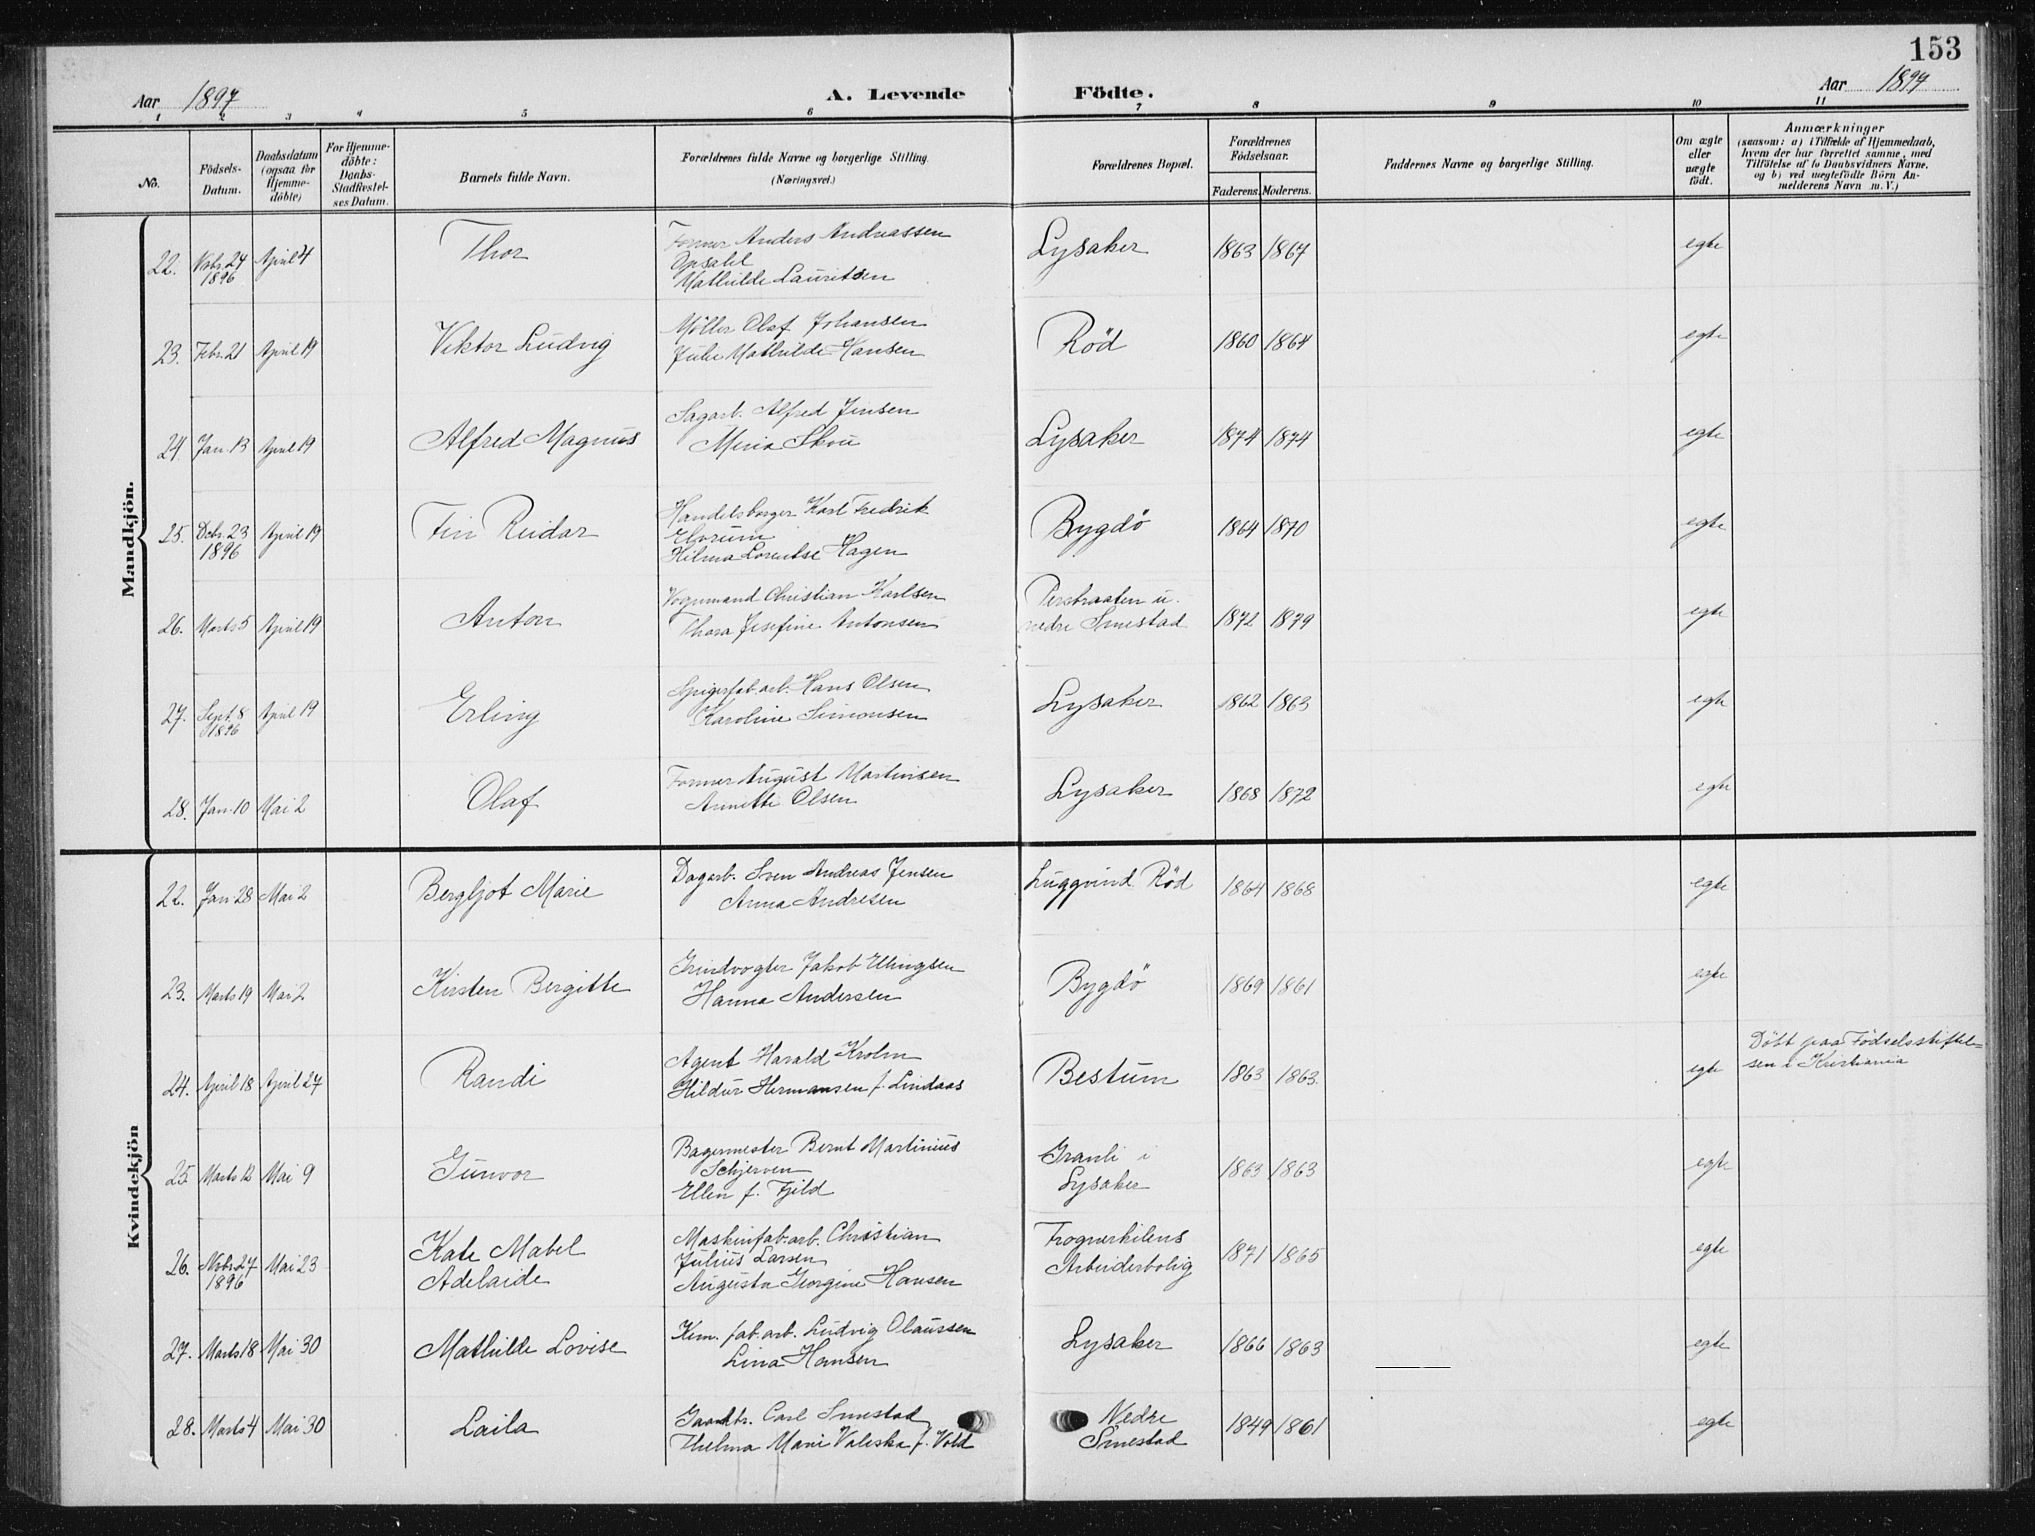 153
Aar 1897 A. Levende Födte. Aar 1897
1 2 3 4 5 6 7 8 9 10 11
No.
Födsels-Datum.
Daabsdatum (ogsaa for Hjemme-döbte)
For Hjemme-döbte: Daabs-Stadfæstel-ses Datum.
Barnets fulde Navn.
Forældrenes fulde Navne og borgerlige Stilling.
(Næringsvei.)
Forældrenes Bopæl.
Forældrenes Födselsaar.
Faderens. Moderens.
Faddernes Navne og borgerlige Stilling.
Om ægte eller uægte födt.
Anmærkninger
(saasom: a) i Tilfælde af Hjemmedaab, hvem der har forrettet samme, med Tilföielse af to Daabsvidners Navne, og b) ved uægtefödte Börn An-melderens Navn m. V.)
Mandkjön.
22. Nvbr. 24 1896 April 4 Thor
Former Anders Andreassen
Opsahl
Mathilde Lauritsen
Lysaker 1863 1867 egte
23. Febr. 21 April 19 Viktor Ludvig
Møller Olaf Johansen
Julie Mathilde Hansen
Röd 1860 1864 egte
24. Jan. 13 April 19 Alfred Magnus
Sagarb. Alfred Jensen
Mina Skou
Lysaker 1874 1874 egte
25. Debr. 23 1896 April 19 Fin Reidar
Handelsborger Karl Fredrik
Elvrum
Hilma Lorentse Hagen
Bygdö 1864 1870 egte
26. Marts 5 April 19 Anton
Vognmand Christian Karlsen
Thora Josefine Antonsen
Persbraaten u.
nedre Smestad
1872 1879 egte
27. Sept. 8 1896 April 19 Erling
Spigerfab.arb. Hans Olsen
Karoline Simonsen
Lysaker 1862 1863 egte
28. Jan. 10 Mai 2 Olaf
Former August Martinsen
Annette Olsen
Lysaker 1868 1872 egte
Kvindekjön
22. Jan 28 Mai 2 Bergljot Marie
Dagarb. Sven Andreas Jensen
Anna Andresen
Luggvind. Röd 1864 1868 egte
23. Marts 19 Mai 2 Kirsten Bergitte
Grindvogter Jakob Ellingsen
Hanna Andersen
Bygdö 1869 1861 egte
24. April 18 April 27 Randi
Agent Harald Krohn
Hildur Hermansen f. Lindaas
Bestum 1863 1863. egte
Döbt paa Födselsstiftel=
sen i Kristiania
25. Marts 12 Mai 9 Gunvor
Bagermester Bernt Martinius
Schjerven
Ellen f. Fjild
Granli i
Lysaker
1863 1863 egte
26. Nvbr. 27 1896 Mai 23 Kate Mabel
Adelaide
Maskinfab.arb. Christian
Julius Larsen
Augusta Georgine Hansen
Frognerkilens
Arbeiderbolig
1871 1865 egte
27. Marts 18 Mai 30 Mathilde Lovise
Kem. fab.arb. Ludvig Olaussen
Lina Hansen
Lysaker 1866 1863 egte
28. Marts 4 Mai 30 Laila
Gaardbr. Carl Smestad
Thelma Marie Valeska f. Vold
Nedre
Smestad
1849 1861 egte